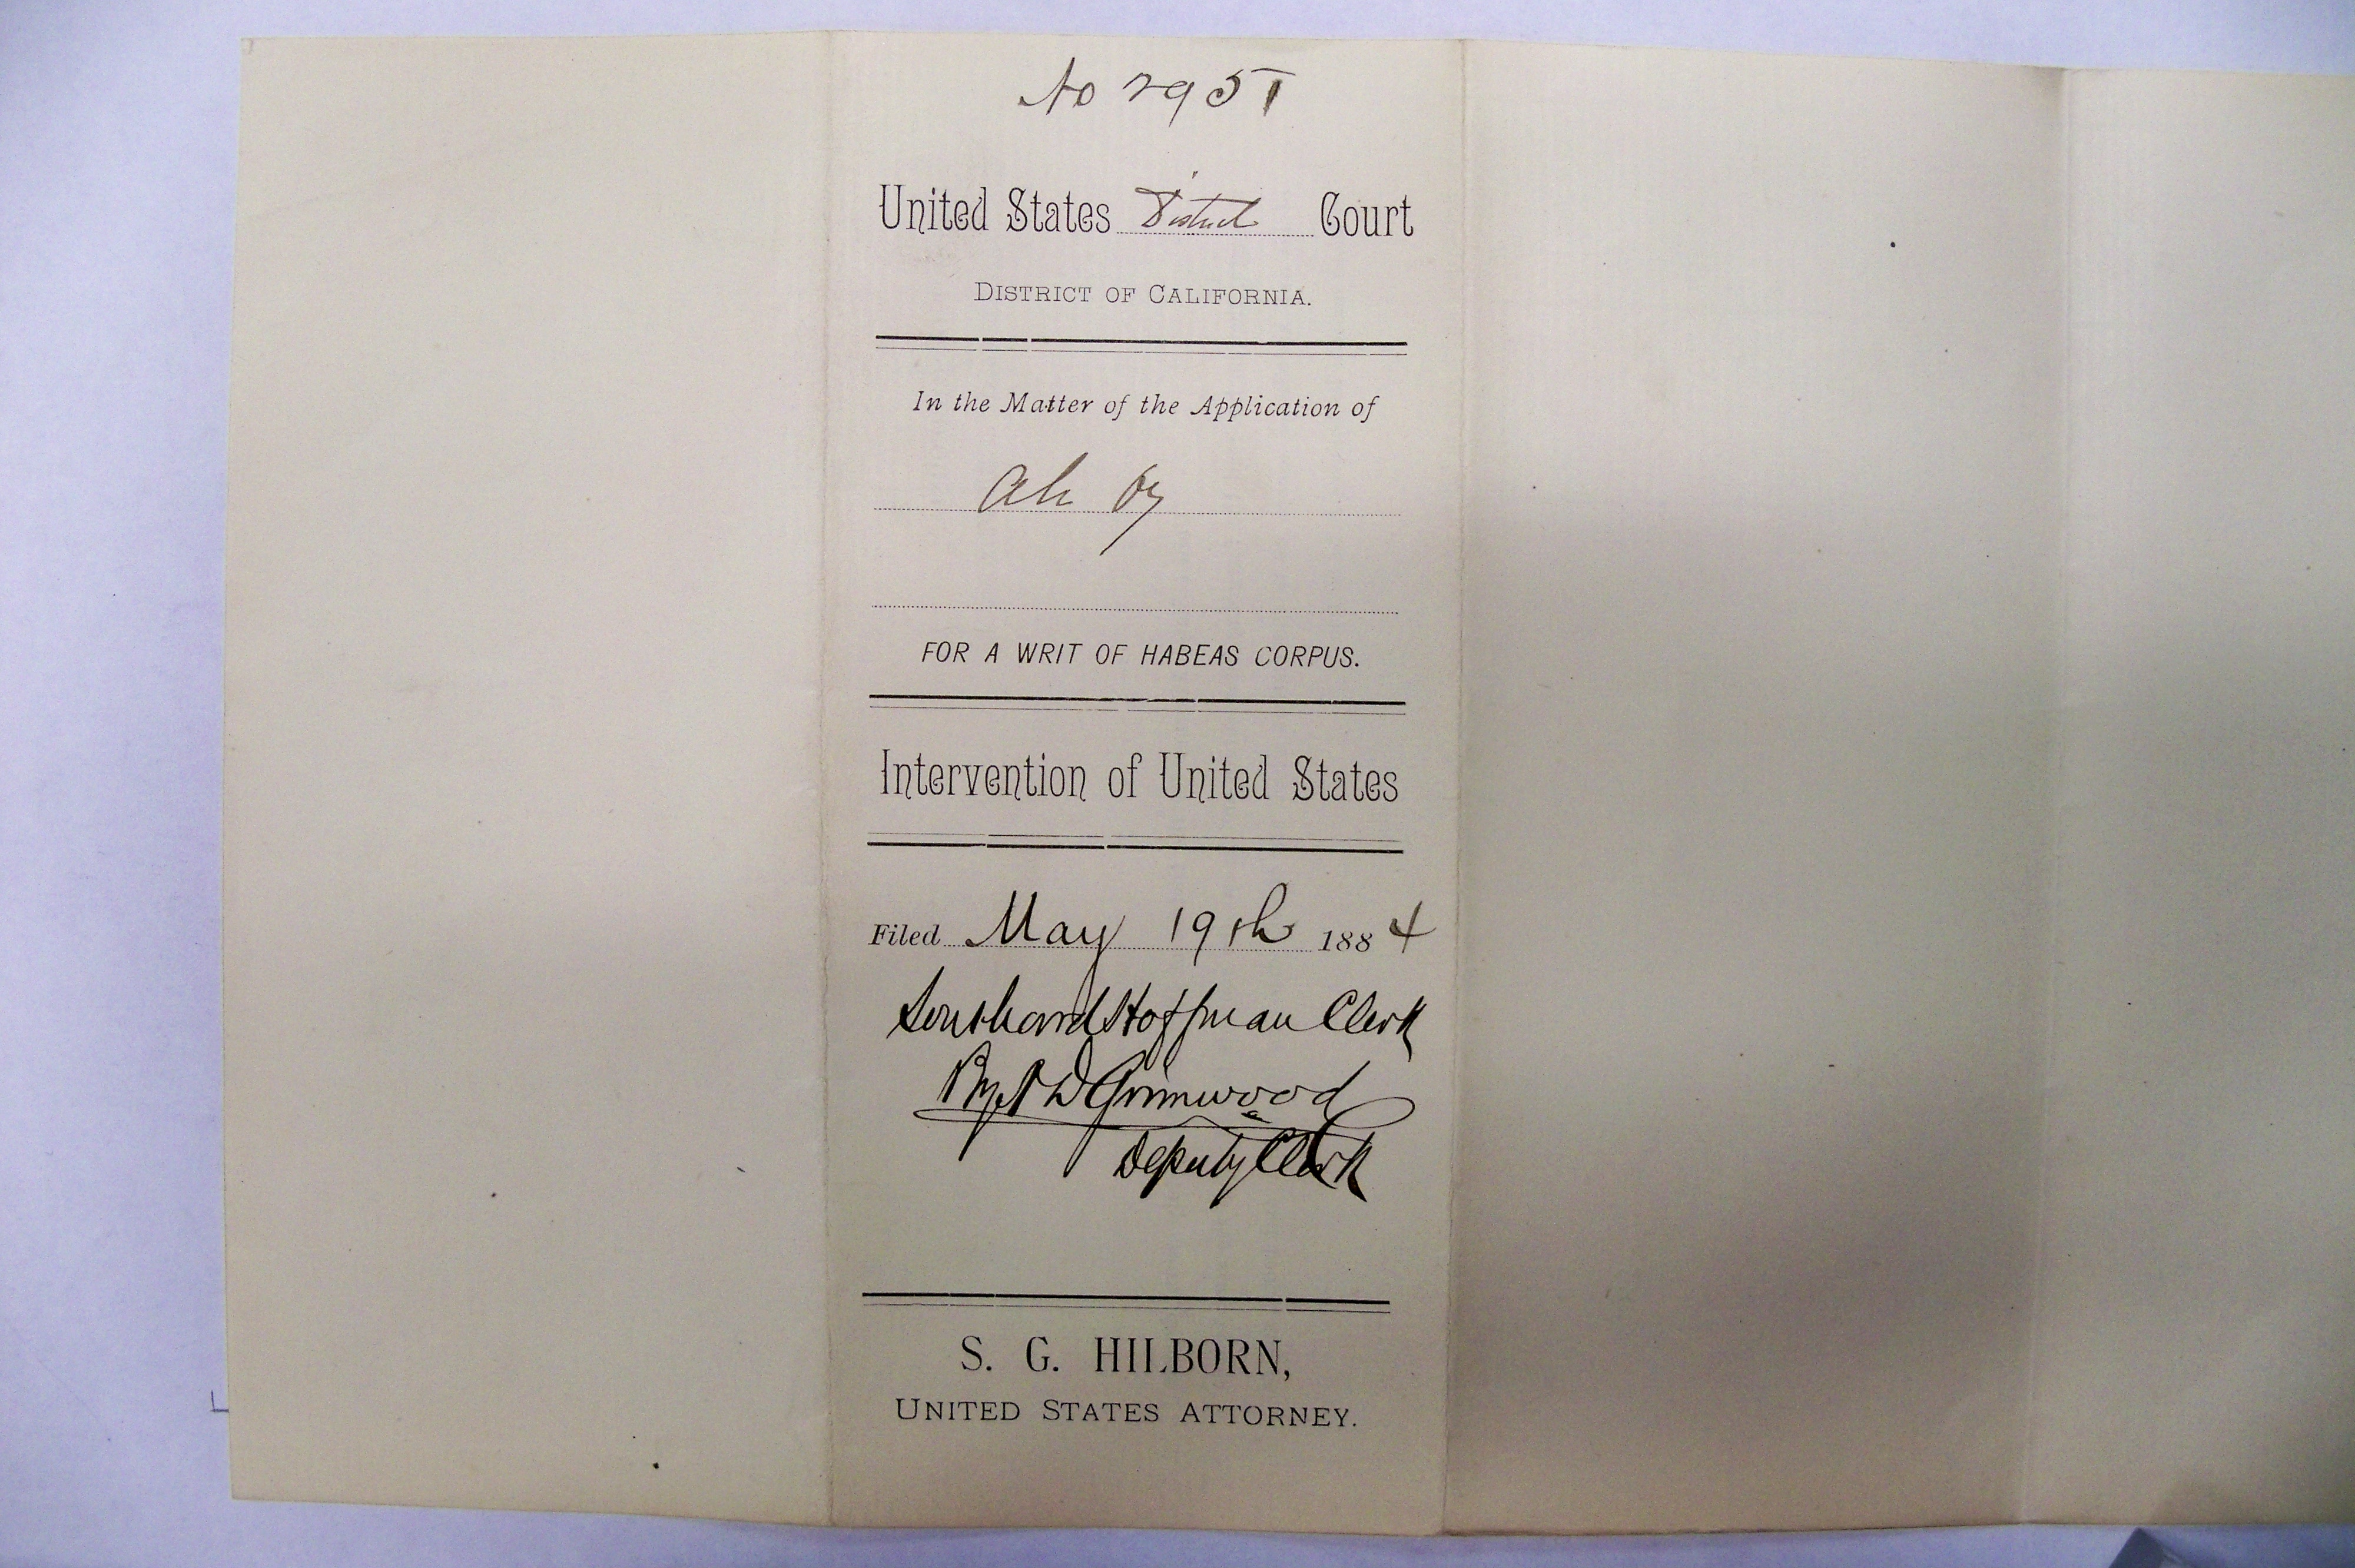 No 2951
United States District Court
DISTRICT OF CALIFORNIA.
In the Matter of the Application of
Ah
FOR A WRIT OF HABEAS CORPUS.
Intervention of United States
Filed May 19th 1884
Southard Hoffman Clerk
By Grimwood
Deputy Clerk
S. G. HILBORN,
UNITED STATES ATTORNEY.